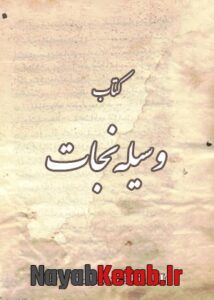 کتاب
وسیله نجات
NayabKetab.Ir